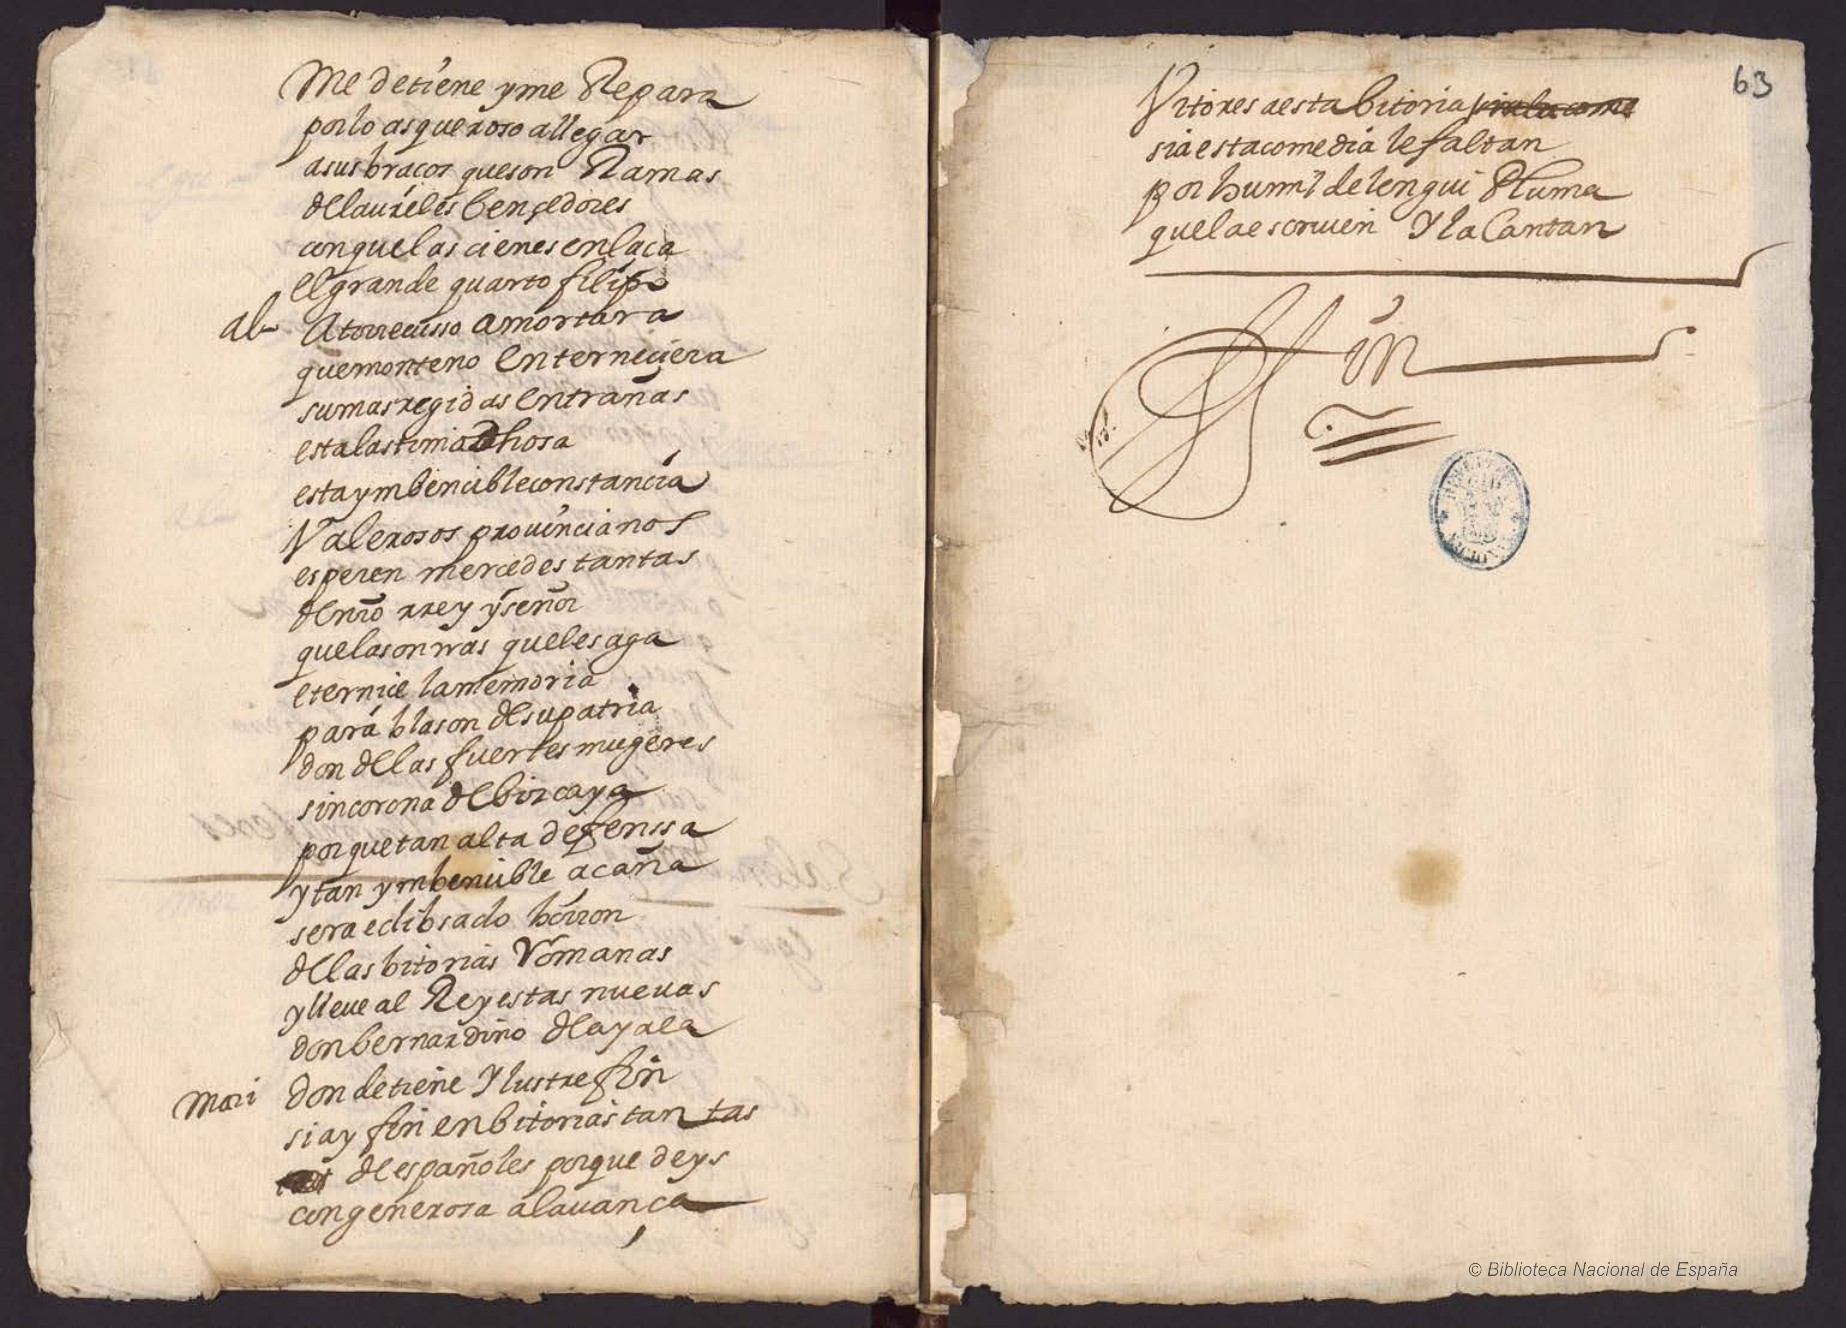 Me detiene y me Repara
por lo asqueroso allegar
a sus braços que son Ramas
de laureles bençedores
con que las cienes enlaça
el grande quarto filipo
al- A torrecusso a mortara
que monte no enterneciera
su mas regidas entrañas
esta lastima
esta ymbencible constancia
Valerosos provincianos
esperen mercedes tantas
de nro rrey y señor
que las onrras que les aga
eternice la memoria
para blason de su patria
don de las fuertes mugeres
sin corona de bizcaya
porque tan alta defenssa
y tan ymbencible acaña
sera eclibsado borron
de las bitorias Romanas
y lleve al Rey estas nuevas
don bernardino de ayala
Mari don de tiene Ylustre fin
si ay fin en bitorias tantas
de españoles porque deys
con generosa alavança
63
Vitores a esta bitoria
si a esta comedia le faltan
por humilde lengui Pluma
que la escriven Y la Cantan
Fin
© Biblioteca Nacional de España